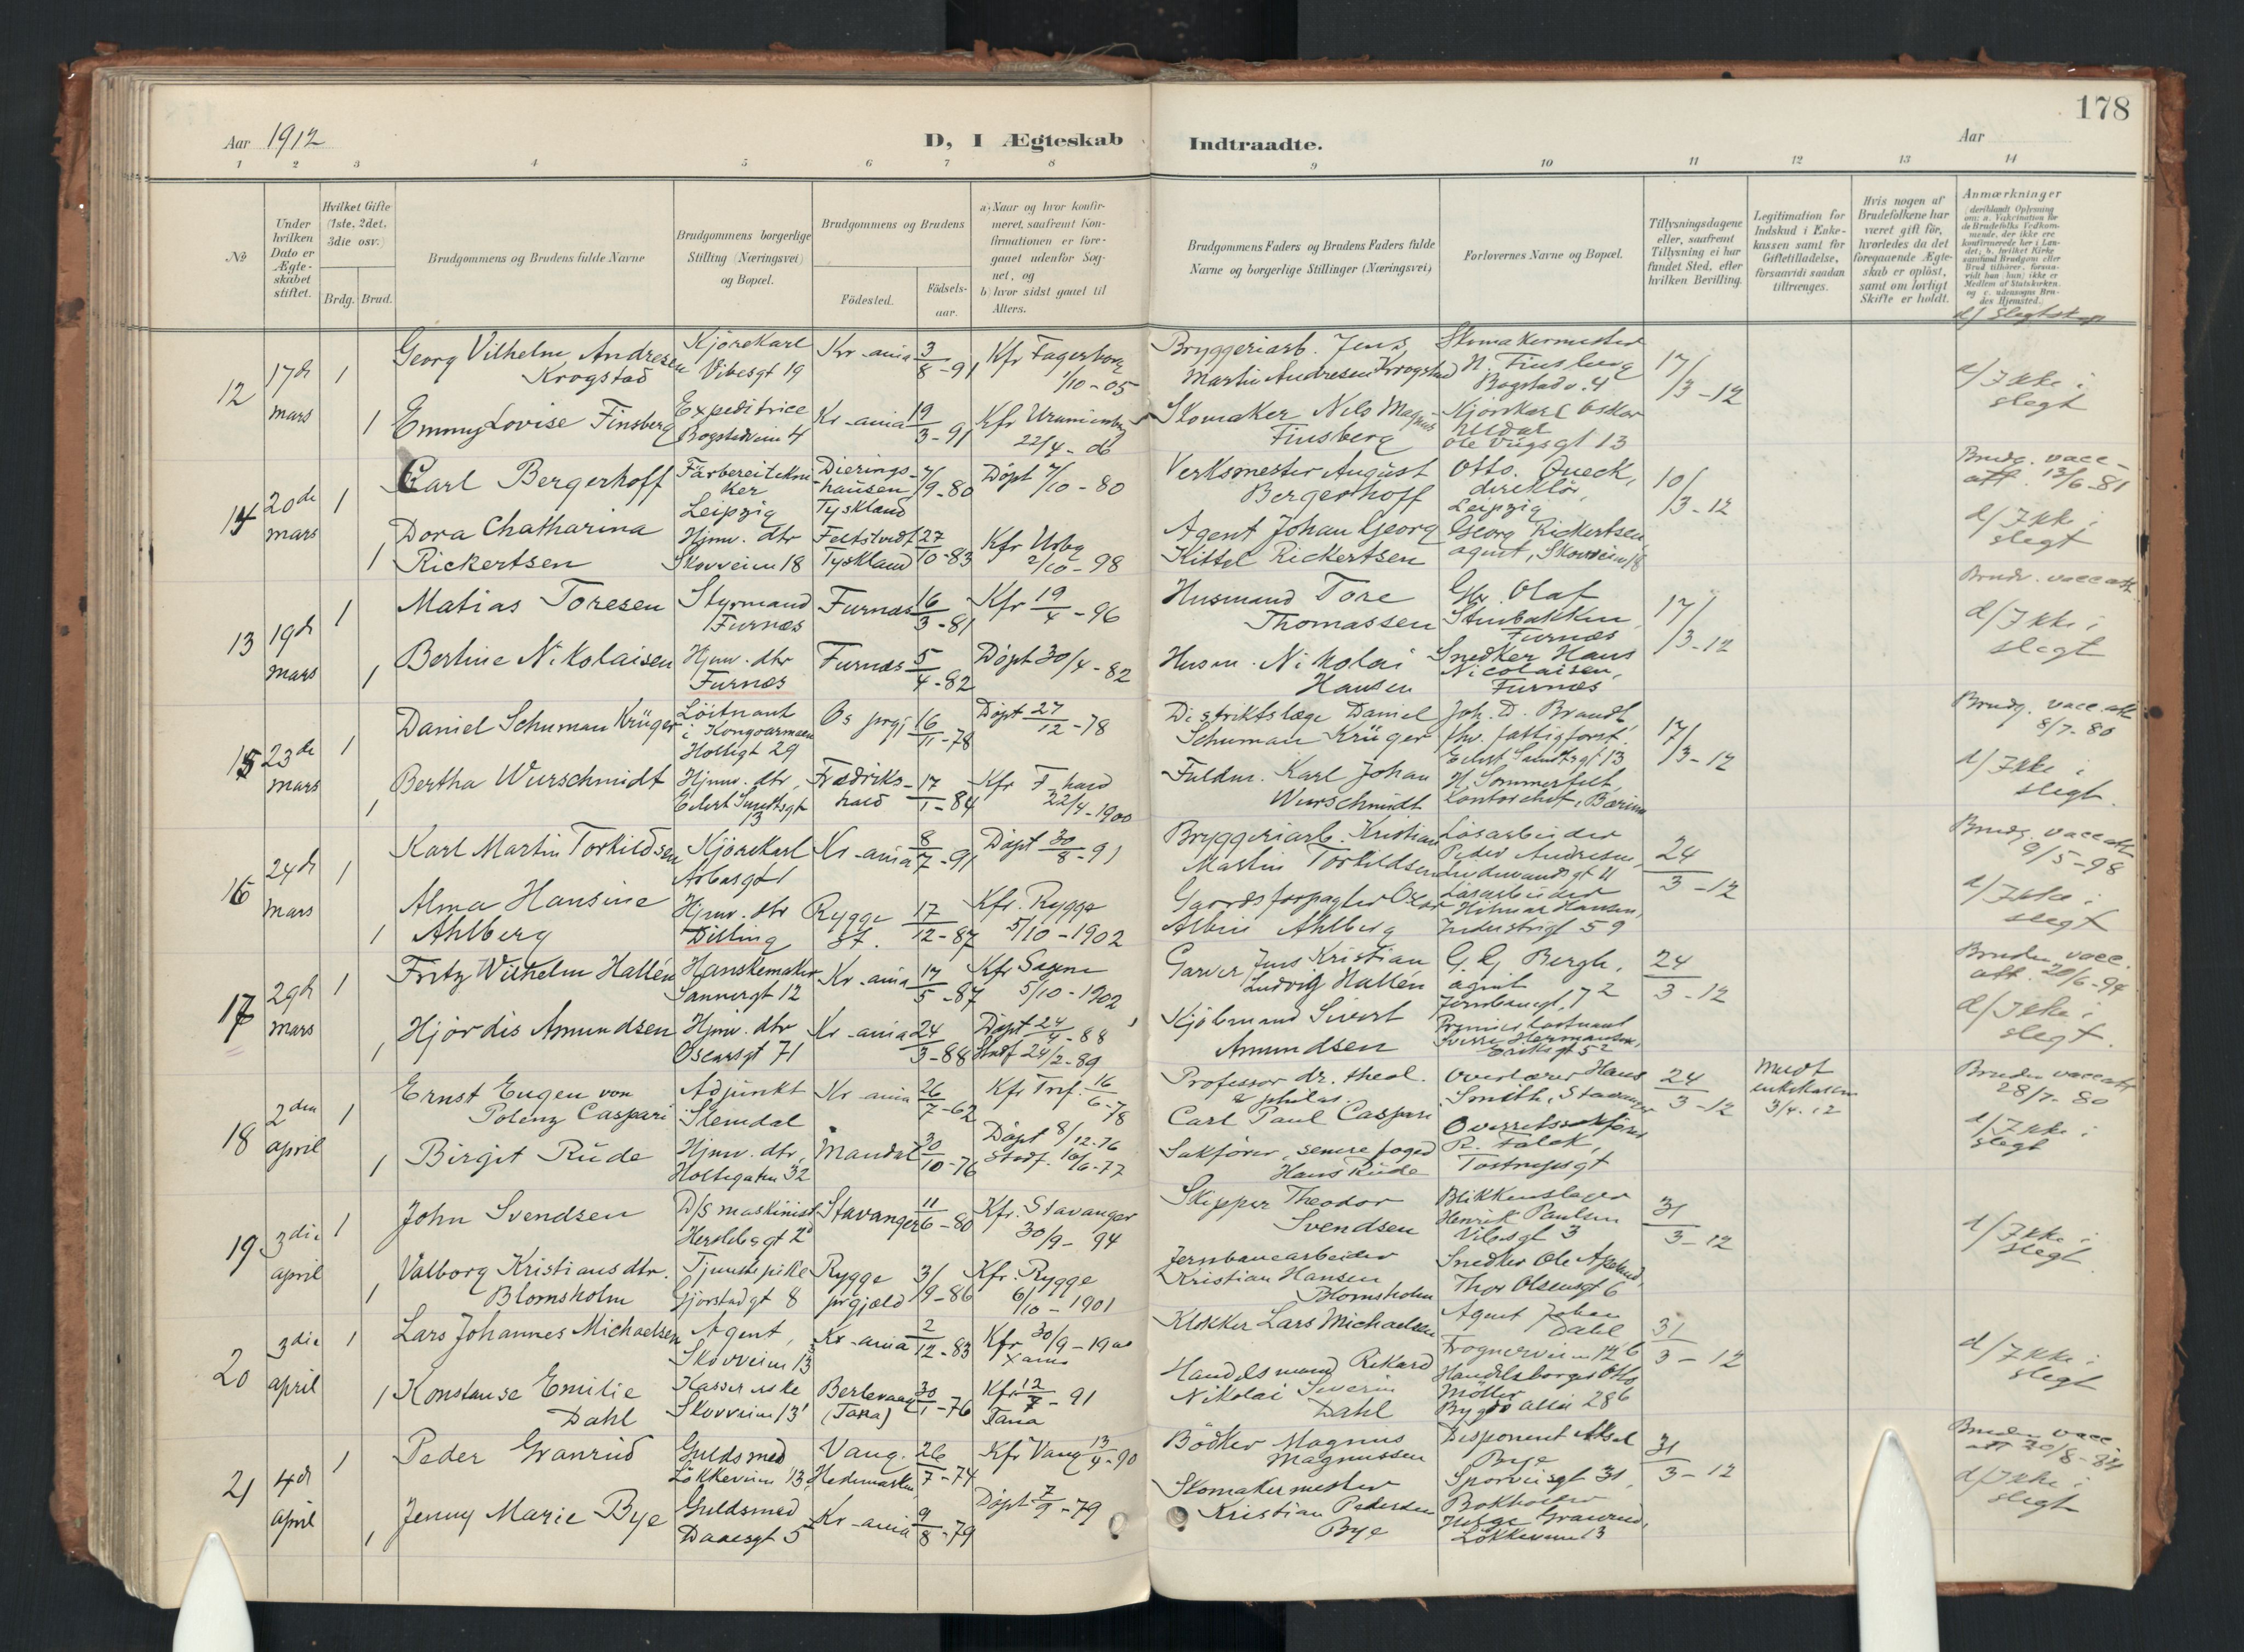 178
Aar 1912
D, I Ægteskab Indtraadte.
Aar
1 2 3 4 5 6 7 8 9 10 11 12 13 14
No
Under hvilken Dato er Ægteskabet stiftet.
Hvilket Gifte (1ste, 2det, 3die osv.)
Brdg. Brud.
Brudgommens og Brudens fulde Navne
Brudgommens borgerlige Stilling (Næringsvei) og Bopæl.
Brudgommens og Brudens
Födested.
Födsels-aar.
a) Naar og hvor konfirmeret, saafremt Konfirmationen er foregaaet udenfor Sognet, og
b) hvor sidst gaaet til Alters.
Brudgommens Faders og Brudens Faders fulde Navne og borgerlige Stillinger (Næringsvei)
Forlovernes Navne og Bopæl.
Tillysningsdagene eller, saafremt Tillysning ei har fundet Sted, efter hvilken Bevilling.
Legitimation for Indskud i Enkekassen samt for Giftetilladelse, forsaavidt saadan tiltrænges.
Hvis nogen af Brudefolkene har været gift för, hvorledes da det foregaaende Ægteskab er oplöst, samt om lovligt Skifte er holdt.
Anmærkninger
(deriblandt Oplysning om: a. Vakcination for de Brudefolks Vedkommende, der ikke ere konfirmerede her i Landet; b. hvilket Kirkesamfund Brudgom eller Brud tilhörer, forsaavidt han (hun) ikke er Medlem af Statskirken, og c. udensogns Brudes Hjemsted.)
d/ Slegtskap
12 17de mars
1 Georg Vilhelm Andresen Krogstad
Kjörekarl Vibesgt 19
Kr-ania 3/8-91
Kfr Fagerborg 1/10-05
Bryggeriarb. Jens Martin Andresen Krogstad
Skomakermester N. Finsberg Bogstadv. 4
17/3-12
d/ Ikke i slegt
1 Emmy Lovise Finsberg
Expeditrice Bogstadvein 4
Kr-ania 19/3-91
Kfr Uranienbg 22/4-06
Skomaker Nils Magnus Finsberg
Kjörekarl Oskar Ole Vigsgt 13
14 20de mars
1 Carl Bergerhoff
Färbereitekniker Leipzig
Dieringshausen Tyskland 7/9-80
Döpt 7/10-80
Verksmester August Bergerhoff
Otto Queck, direktör, Leipzig
10/3-12
Brudg. vacc-att. 13/6-81
d/ Ikke i slegt
1 Dora Chatharina Rickertsen
Hjmv. dtr Skovveien 18
Feltstedt Tyskland 27/10-83
Kfr Urbg 2/10-98
Agent Johan Georg Kittel Rickertsen
Georg Rickertsen agent, Skovveien 18
13 19de mars
1 Matias Toresen
Styrmand Furnæs
Furnæs 16/3-81
Kfr 19/4-96
Husmand Tore Thomassen
Gbr. Olaf Stenbakken Furnæs
17/3-12
Brudr. vacc att.
d/ Ikke i slegt
1 Bertine Nikolaisen
Hjmv. dtr Furnæs
Furnæs 5/4-82
Döpt 30/4-82
Husm. Nikolai Hansen
Snedker Hans Nicolaisen, Furnæs
15 23de mars
1 Daniel Schuman Krüger
Löitnant i Kongoarmeen Holtegt 29
Os prgj 16/11-78
Döpt 27/12-78
Distriktslæge Daniel Schuman Krüger
Joh. D. Brandt, fhv. fattigforst. Eilert Sundtsgt 13
17/3-12
Brudg. vacc att 8/7-80
d/ Ikke i slegt.
1 Bertha Wurschmidt
Hjmv. dtr, Eilert Sundtsgt 13
Fredrikshald 17/1-84
Kfr F-hald 22/4-1900
Fuldm. Karl Johan Wurschmidt
H. Sommerfelt, Kontorchef, Bærum
16 24de mars
1 Karl Martin Torkildsen
Kjörekarl Arbosgt 1
Kr-ania 8/7-91
Döpt 30/8-91
Bryggeriarb. Kristian Martin Torkildsen
Lösarbeider Peder Andresen, Lindemandsgt 11
24/3-12
Brudg. vacc att 9/5-98
d/ Ikke i slegt
1 Alma Hansine Ahlberg
Hjmv. dtr Dilling
Rygge st. 17/12-87
Kfr. Rygge 5/10-1902
Gaardsforpagter Oscar Albin Ahlberg
Lösarbeider Hilmar Hansen, Industrigt 59
17 29de mars
1 Fritz Wilhelm Hallén
Hanskemaker Sannergt 12
Kr-ania 17/5-87
Kfr Sagene 5/10-1902
Garver Jens Kristian Ludvig Hallén
G. G. Bergh, agent Jernbanegt, 7²
24/3-12
Bruden vacc. att. 20/6-94
d/ Ikke i slegt.
1 Hjördis Amundsen
Hjmv. dtr Oscarsgt 71
Kr-ania 24/3-88
Döpt 24/4-88 Stadf 24/2-89
Kjöbmand Sivert Amundsen
Premierløitnant Sverre Hermansen, Eriksgt 5²
18 2den april
1 Ernst Eugen von Polenz Caspari
Adjunkt Slemdal
Kr-ania 26/7-62
Kfr Trif. 16/6-78
Professor dr. theol. & philos. Carl Paul Caspari
Overlærer Hans Smith, Stavanger
24/3-12
Medt enkekassen 3/4.12
Bruden vacc att 28/7-80
d/ Ikke i slegt
1 Birgit Rüde
Hjmv. dtr, Holtegaten 32
Mandal 30/10-76
Döpt 8/12-76 Stadf. 10/6-77
Sakförer, senere foged Hans Rüde
Overretssakförer R. Falck, Tostrupsgt
19 3die april
1 John Svendsen
D/S maskinist Herslebsgt 2
Stavanger 11/6-80
Kfr. Stavanger 30/9-94
Skipper Theodor Svendsen
Blikkenslager Henrik Paulsen Vibesgt 3
31/3-12
d/ Ikke i slegt.
1 Valborg Kristiansdtr. Blomsholm
Tjenestepike Gjörstadgt 8
Rygge prgjæld 3/9-86
Kfr. Rygge 6/10-1901
Jernbanearbeider Kristian Hansen Blomsholm
Snedker Ole Apelund, Thor Olsensgt 6
20 3die april
1 Lars Johannes Michaelsen
Agent, Skovveien 13
Kr-ania 2/12-83
Kfr 30/9-19
Klokker Lars Michaelsen
Agent Johan Dahl, Frognerveien 12,6
31/3-12
d/ Ikke i slegt
1 Konstanse Emilie Dahl
Kassererske Skovveien 13'
Berlevaag (Tana) 30/1-76
Kfr 12/7-91 Tana
Handelsmand Rikard Nikolai Severin Dahl
Handelsborger Otto Möller Bygdö allé 28 6
21 4de april
1 Peder Granrud
Guldsmed Lökkeveien 13,
Vang. Hedemarken 26/7-74
Kfr Vang 13/4-90
Bödker Magnus Magnussen
Disponent Aksel Bye Sporveisgt 31,
31/3-12
Bruden vacc. att 20/8-84
d/ Ikke i slegt
1 Jenny Marie Bye
Guldsmed Daaesgt 5
Kr-ania 9/8-79
Döpt 7/9-79
Skomakermester Kristian Pedersen Bye
Bokholder Helge Granrud, Lökkeveien 13